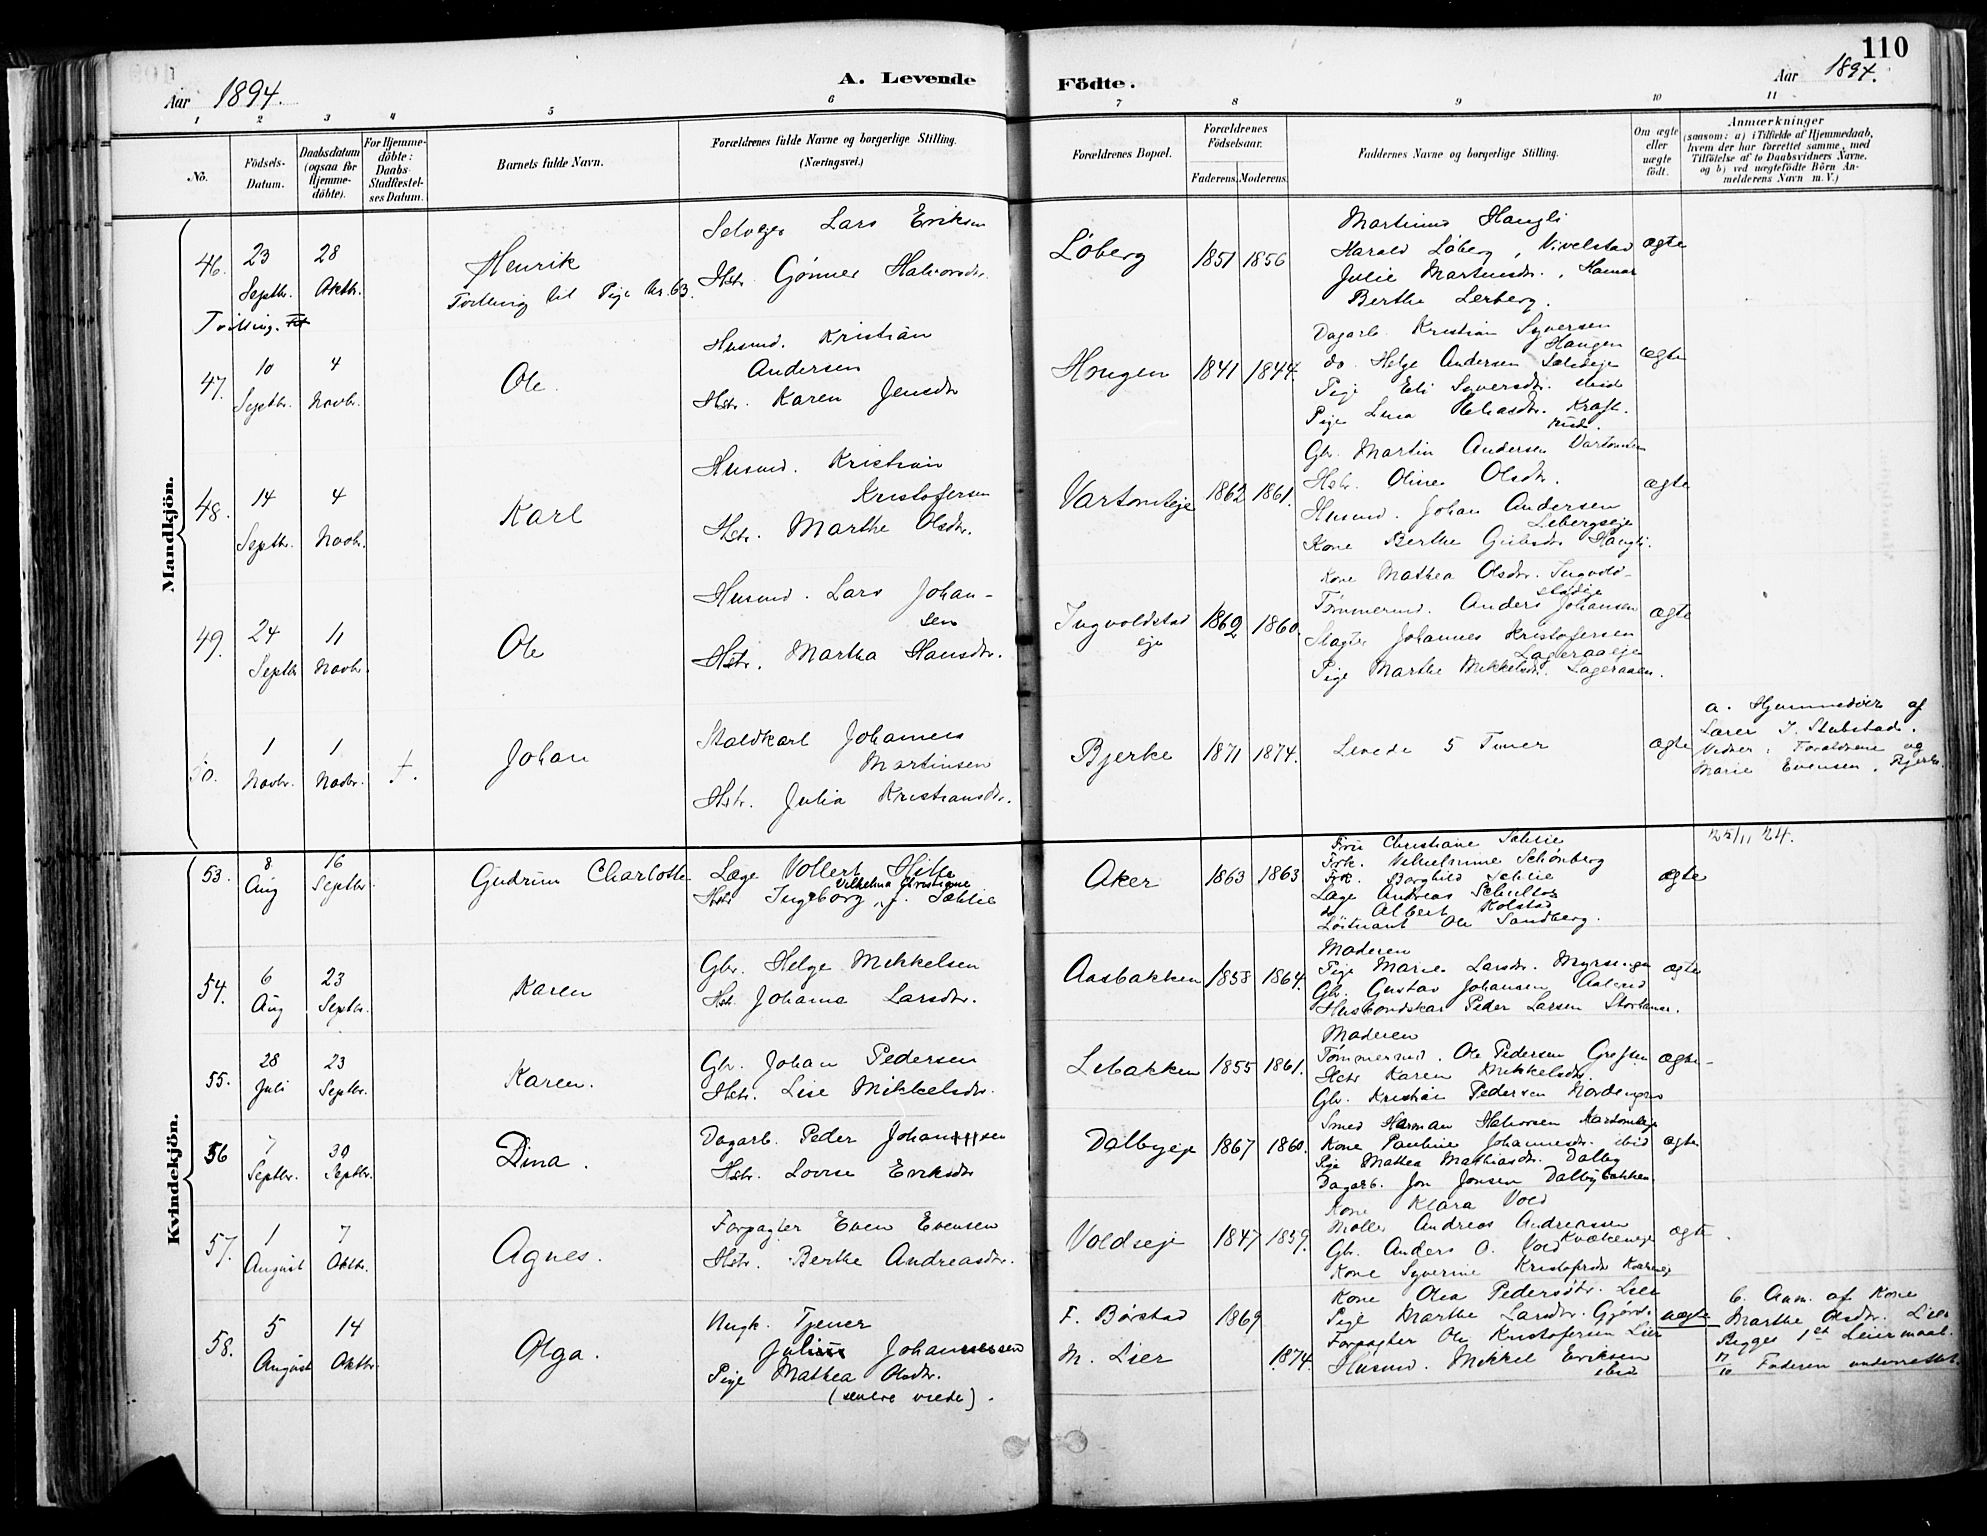 110
Aar 1894.
A. Levende
Födte.
Aar 1894.
1 2 3 4 5 6 7 8 9 10 11
No.
Födsels-Datum.
Daabsdatum (ogsaa for Hjemmedöbte).
For Hjemmedöbte: Daabs-Stadfæstelses Datum.
Barnets fulde Navn.
Forældrenes fulde Navne og borgerlige Stilling. (Næringsvei.)
Forældrenes Bopæl.
Forældrenes Födselsaar.
Faderens. Moderens.
Faddernes Navne og borgerlige Stilling.
Om ægte eller uægte födt.
Anmærkninger
(saasom: a) i Tilfælde af Hjemmedaab,
hvem der har forrettet samme, med
Tilföielse af to Daabsvidners Navne.
og b) ved uægtefödte Börn Anmelderens Navn m. V.)
Mandkjön.
46. 23 Septbr. 28 Oktbr.
Henrik
Tvilling til Pige Nr. 63.
Selveier Lars Eriksen
Hstr. Gønner Halvorsdr.
Løberg 1851 1856
Martinus Haugli
Harald Løberg, Nivelstad
Julie Martinsdr., Hamar
Berthe Lerberg.
ægte
Tvilling.
47. 10 Septbr. 4 Novbr.
Ole
Husmd. Kristian
Andersen
Hstr. Karen Jensdr
Haugen 1841 1844.
Dagarb. Kristian Syversen
Haugen
do Helge Andersen
Pige Eli Syversdr. ibid
Pige Lina
ægte
48. 14 Septbr. 4 Novbr.
Karl
Husmd. Kristian
Kristofersen
Hstr. Marthe Olsdr.
Vartomteje 1862 1861.
Gbr. Martin Andersen Vartomten
Hstr. Oline Olsdr.
Husmd. Johan Andersen
Lebergseje
Kone Berthe Haugli.
ægte
49. 24 Septbr 11 Novbr.
Ole
Husmd. Lars Johan-
sen
Hstr. Martha Hansdr.
Ingvoldstad
eje
1862 1860.
Kone Mathea Olsdr. Ingvold-
stadeje
Tømmermd. Anders Johansen
Slagter Johannes Kristofersen
Lageraaeje
Pige Marthe Mikkelsdr. Lageraaen.
ægte
50. 1 Novbr. 1 Novbr. †.
Johan
Staldkarl Johannes
Martinsen
Hstr. Julia Kristiansdr.
Bjerke 1871 1874.
Levede 5 Timer
ægte
a. Hjemmedøbt af
Lærer J. Stubstad.
Vidner: Forældrene og
Marie Evensen, Bjerke.
Kvindekjön.
25/11 24.
53. 8 Aug 16 Septbr.
Gudrun Charlotte
Læge Vollert Hille
Vilhelma Christiane
Hstr Ingeborg, f. Sæhlie
Aker 1863 1863
Fru Christiane Sæhlie
Frk. Vilhelmine Schönberg
Frk. Borghild Sæhlie
Læge Andreas Schultze
do Albert Kolstad
Løitnant Ole Sandberg.
ægte
54. 6 Aug 23 Septbr.
Karen
Gbr. Helge Mikkelsen
Hst. Johanne Larsdr.
Aasbakken 1858 1864.
Moderen
Pige Marie Larsdr. Myrsengen
Gbr. Gustav Johansen
Husbondskar Peder Larsen Storhamar.
ægte
55. 28 Juli 23 Septbr.
Karen.
Gbr. Johan Pedersen
Hstr. Lise Mikkelsdr.
Lebakken 1855 1861.
Moderen
Tømmermd. Ole Pedersen Grefsen
Hstr Karen Mikkelsdr.
Gbr. Kristian Pedersen Nordengen
ægte
56 7 Septbr. 30 Septbr.
Dina.
Dagarb. Peder Johannsen
Hstr. Lovise Eriksdr
Dalbyeje 1867 1860.
Smed Herman Halvorsen Vartomteje
Kone Pauline Johannesdr. ibid
Pige Mathea Mathiasdr. Dalby
Dagarb. Jon Jonsen Dalbybakken
ægte
57. 1 August 7 Oktbr.
Agnes.
Forpagter Even Evensen
Hstr. Berthe Andreasdr.
Voldseje 1847 1859.
Kone Klara Vold
Møller Andreas Andreassen
Kvækeneje
Gbr. Anders O. Vold
Kone Syverine Kristofersdr
ægte.
58. 5 August 14 Oktbr.
Olga.
Ungk. Tjener
Julius Johannessen
Pige Mathea Olsdr.
F. Børstad 1869
M. Lier 1874.
Kone Olea Pedersdtr. Lier
Pige Marthe Larsdr.
Forpagter Ole Kristofersen Lier
Husmd. Mikkel Eriksen
ibid
uægte
b. Anm. af Kone
Marthe Olsdr. Lier
Begges 1st Leiermaal.
17/10 Faderen underrettet.